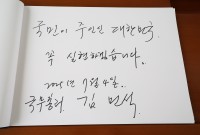 국민이 주인인 대한민국,
꼭 실현하겠습니다.
2025년 7월 4일.
국무총리 김민석